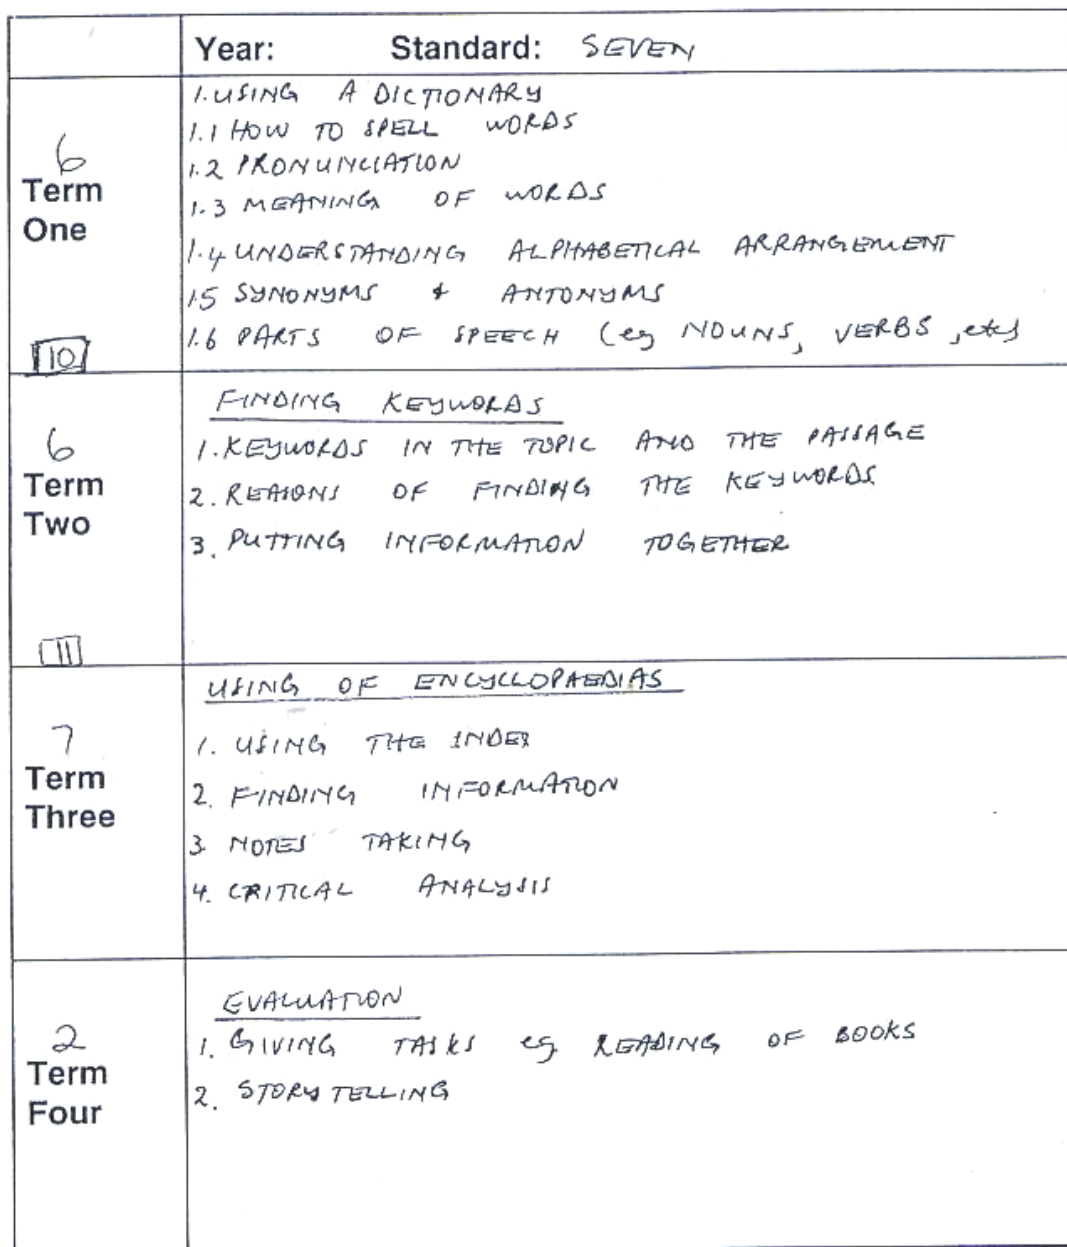 Year: Standard: SEVEN
6
Term
One
10
1. USING A DICTIONARY
1.1 HOW TO SPELL WORDS
1.2 PRONUNCIATION
1.3 MEANING OF WORDS
1.4 UNDERSTANDING ALPHABETICAL ARRANGEMENT
1.5 SYNONYMS & ANTONYMS
1.6 PARTS OF SPEECH (eg NOUNS, VERBS, etc)
6
Term
Two
11
FINDING KEYWORDS
1. KEYWORDS IN THE TOPIC AND THE PASSAGE
2. REASONS OF FINDING THE KEYWORDS
3. PUTTING INFORMATION TOGETHER
7
Term
Three
USING OF ENCYCLOPAEDIAS
1. USING THE INDEX
2. FINDING INFORMATION
3 NOTES TAKING
4. CRITICAL ANALYSIS
2
Term
Four
EVALUATION
1. GIVING TASKS eg READING OF BOOKS
2. STORY TELLING